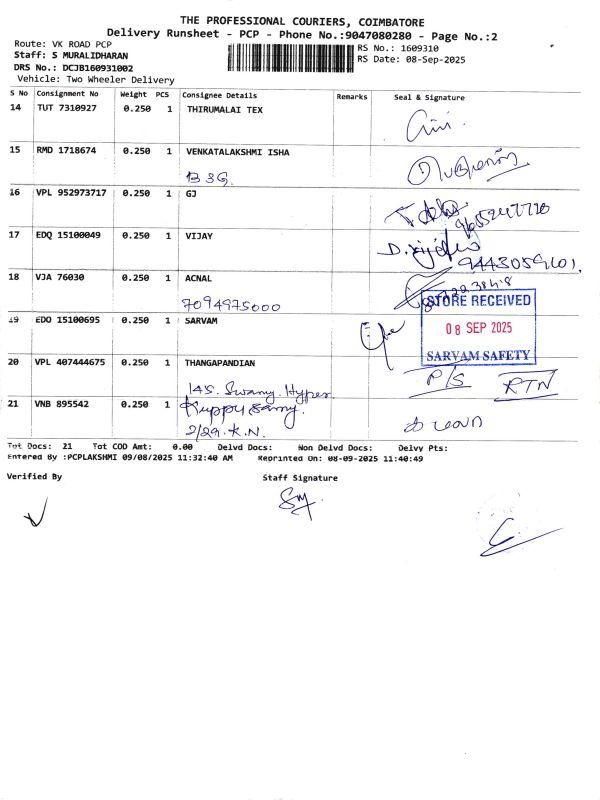 THE PROFESSIONAL COURIERS, COIMBATORE
Delivery Runsheet - PCP - Phone No.:9047080280 - Page No.:2
Route: VK ROAD PCP
Staff: S MURALIDHARAN
DRS No.: DCJB160931002
Vehicle: Two Wheeler Delivery
RS No.: 1609310
RS Date: 08-Sep-2025
S No Consignment No Weight PCS Consignee Details Remarks Seal & Signature
14 TUT 7310927 0.250 1 THIRUMALAI TEX
15 RMD 1718674 0.250 1 VENKATALAKSHMI ISHA
B3G.
16 VPL 952973717 0.250 1 GJ
17 EDQ 15100049 0.250 1 VIJAY
9443059601.
18 VJA 76030 0.250 1 ACNAL
7094975000
19 EDO 15100695 0.250 1 SARVAM
STORE RECEIVED
08 SEP 2025
SARVAM SAFETY
20 VPL 407444675 0.250 1 THANGAPANDIAN
P/S RTN
145. Swamy. Hyper
21 VNB 895542 0.250 1 Kuppusamy.
2/29. K.N.
Tot Docs: 21 Tot COD Amt: 0.00 Delvd Docs: Non Delvd Docs: Delvy Pts:
Entered By :PCPLAKSHMI 09/08/2025 11:32:40 AM Reprinted On: 08-09-2025 11:40:49
Verified By Staff Signature